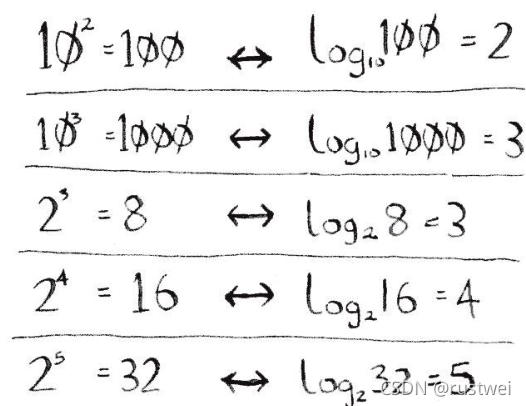 10² = 100 ↔ log₁₀100 = 2
10³ = 1000 ↔ log₁₀1000 = 3
2³ = 8 ↔ log₂8 = 3
2⁴ = 16 ↔ log₂16 = 4
2⁵ = 32 ↔ log₂32 = 5
CSDN @rustwei